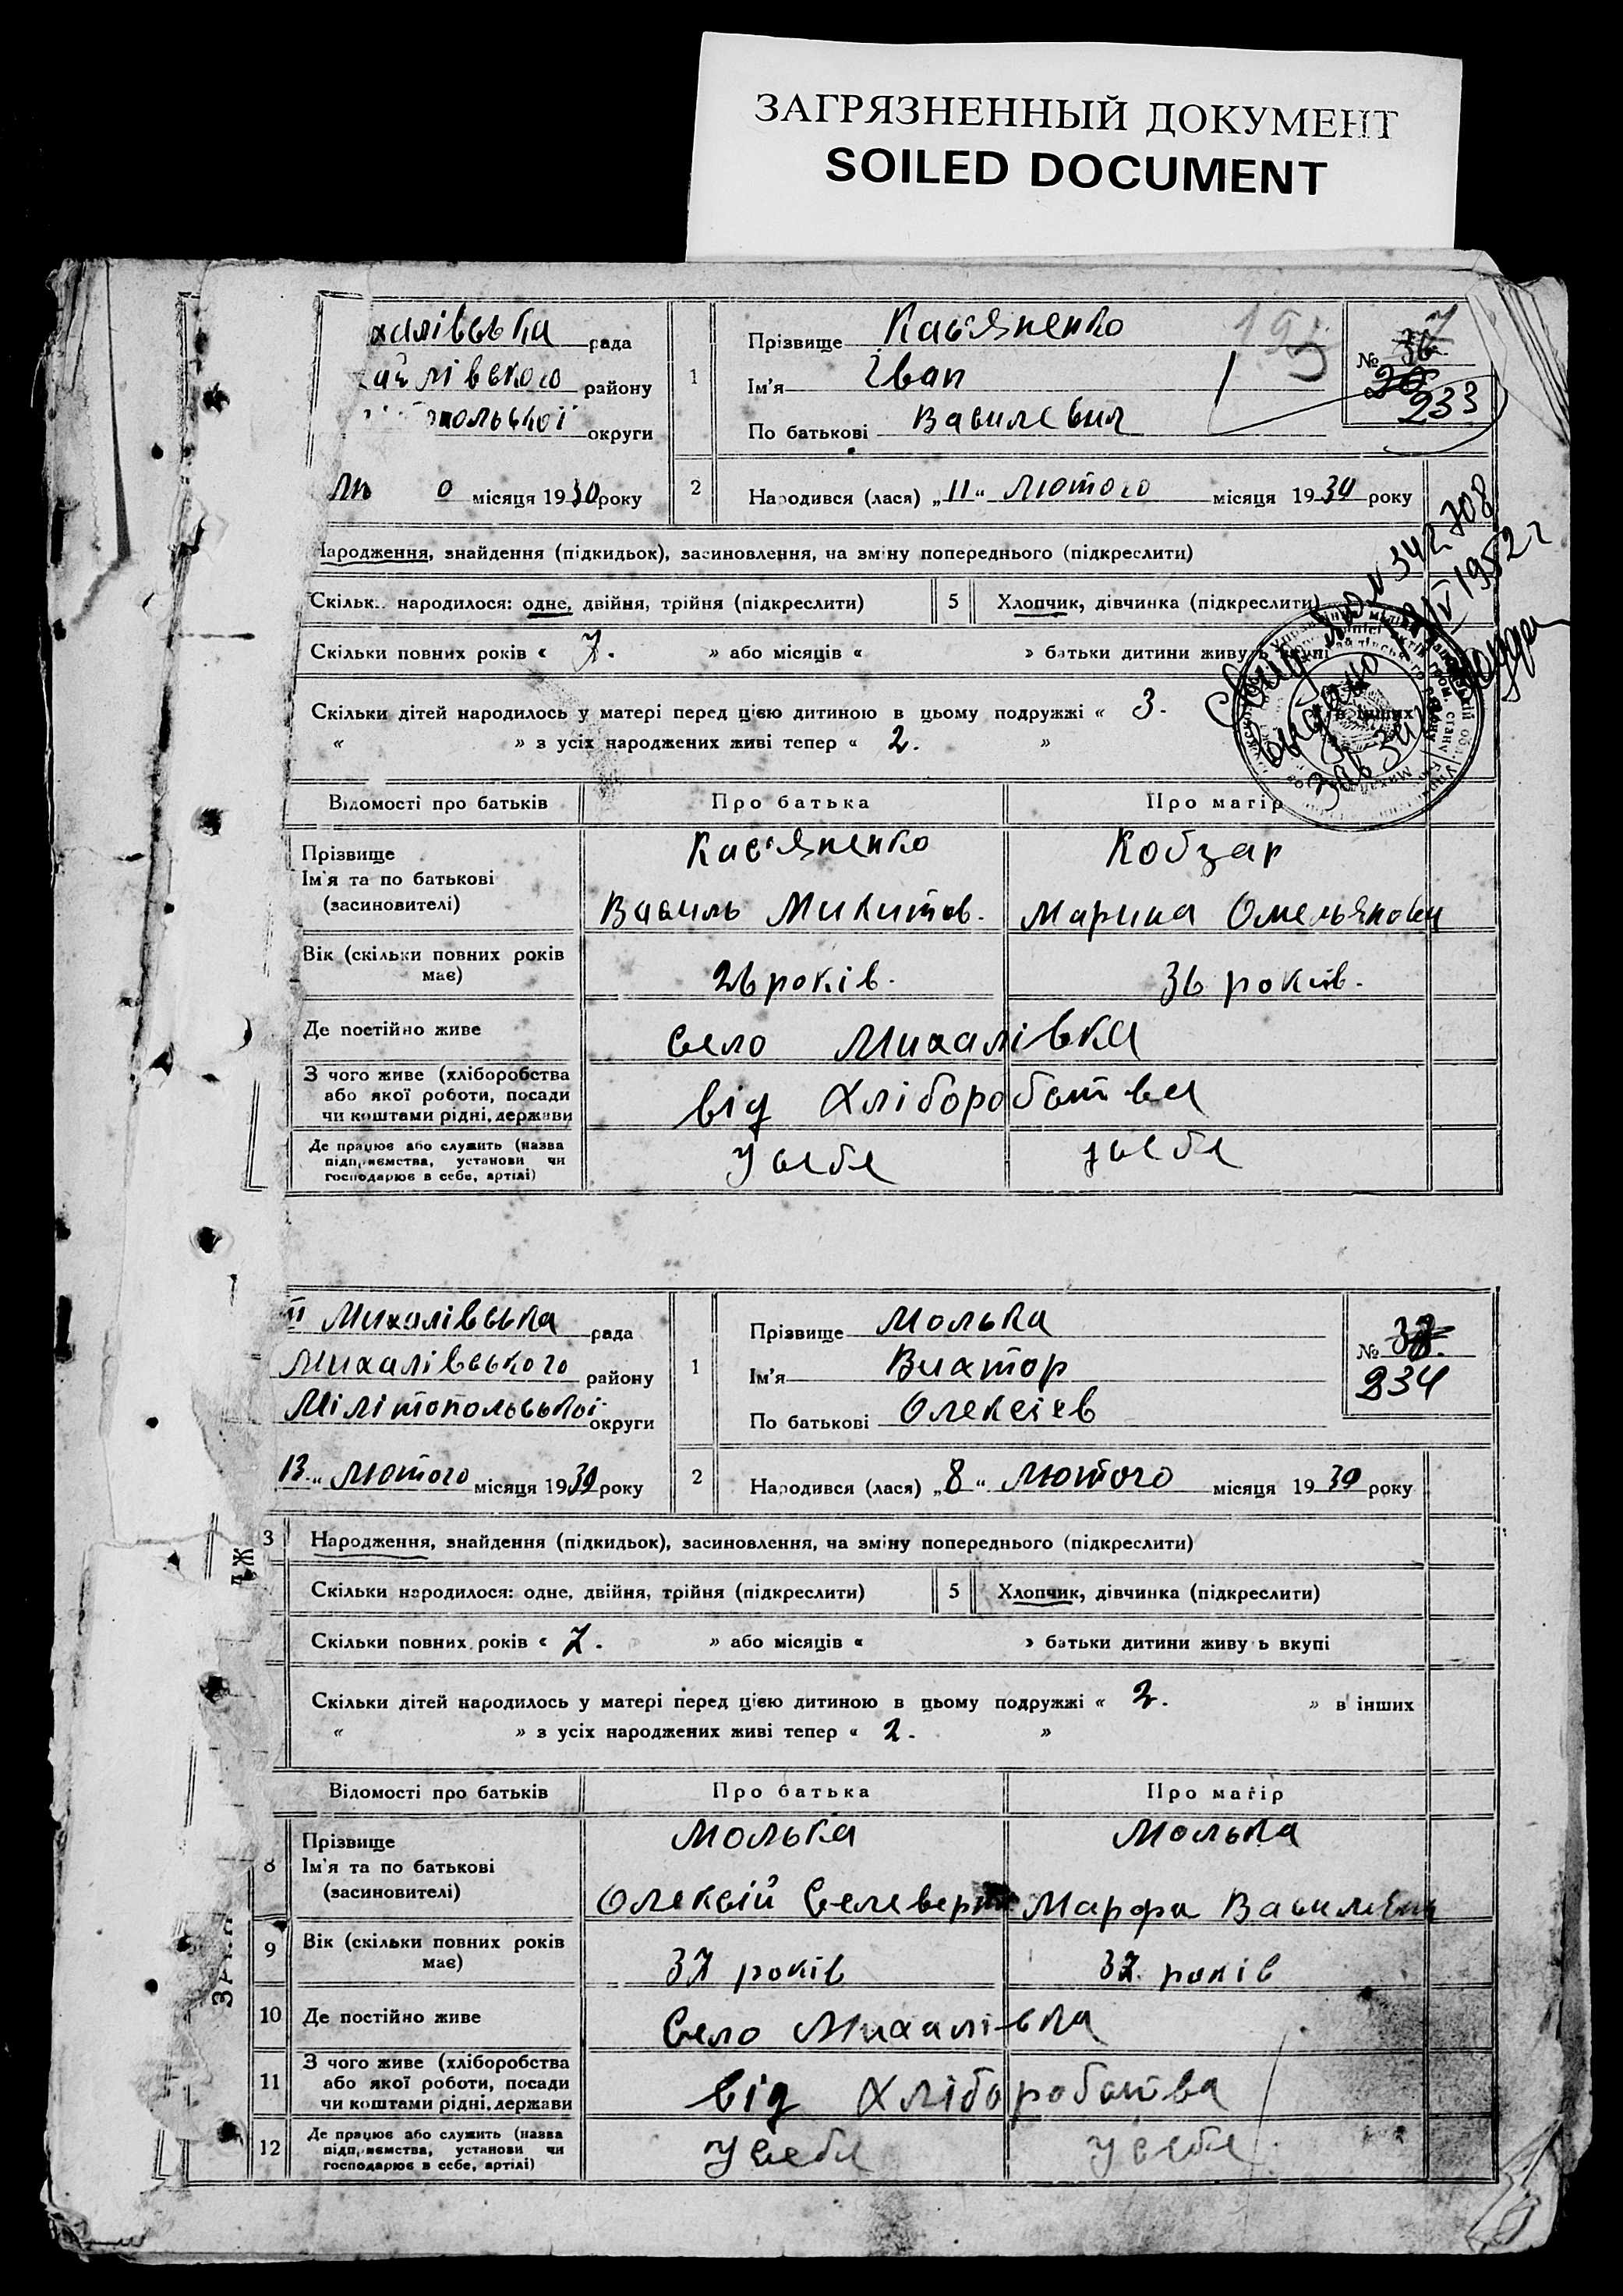 ЗАГРЯЗНЕННЫЙ ДОКУМЕНТ
SOILED DOCUMENT
халівська рада
районy
польської округи
1
Прізвище Кас'яненко
Ім'я Іван
По батькові Василевич
№ 36
233
місяця 1930 року
2
Народився (лася) „11“ Лютого місяця 1930 року
Народження, знайдення (підкидьок), засиновлення, на зміну попереднього (підкреслити)
Скільк.. народилося: одне, двійня, трійня (підкреслити) 5 Хлопчик, дівчинка (підкреслити)
Скільки повних років « 7. » або місяців « » батьки дитини живу ь вкупі
Скільки дітей народилось у матері перед цією дитиною в цьому подружжі « 3. в інших
« » з усіх народжених живі тепер « 2. »
342708
1952 г
Відомості про батьків Про батька Про матір
Прізвище Кас'яненко Кобзар
Ім'я та по батькові
(засиновителі) Василь Микитов. Марина Омельянови
Вік (скільки повних років
має) 26 років. 36 років.
Де постійно живе село Михалівка
З чого живе (хліборобства
або якої роботи, посади
чи коштами рідні, держави від хліборобства
Де працює або служить (назва
підприємства, установи чи
господарює в себе, артілі) У себе у себе
Михалівська рада
Михалівського району
Мілітопольської округи
1
Прізвище Молька
Ім'я Виктор
По батькові Олексієв
№
234
13 „ Лютого місяця 1930 року
2
Народився (лася) „8“ Лютого місяця 1930 року
3 Народження, знайдення (підкидьок), засиновлення, на зміну попереднього (підкреслити)
Скільки народилося: одне, двійня, трійня (підкреслити) 5 Хлопчик, дівчинка (підкреслити)
Скільки повних років « 7. » або місяців « » батьки дитини живу ь вкупі
Скільки дітей народилось у матері перед цією дитиною в цьому подружжі « 2. » в інших
« » з усіх народжених живі тепер « 2. »
Відомості про батьків Про батька Про матір
Прізвище Молька Молька
8 Ім'я та по батькові
(засиновителі) Олексій Селевер Марфа Василевич
9 Вік (скільки повних років
має) 37 років 37 років
10 Де постійно живе Село Михалівка
11 З чого живе (хліборобства
або якої роботи, посади
чи коштами рідні, держави від хліборобства
12 Де працює або служить (назва
підприємства, установи чи
господарює в себе, артілі) У себе у себе